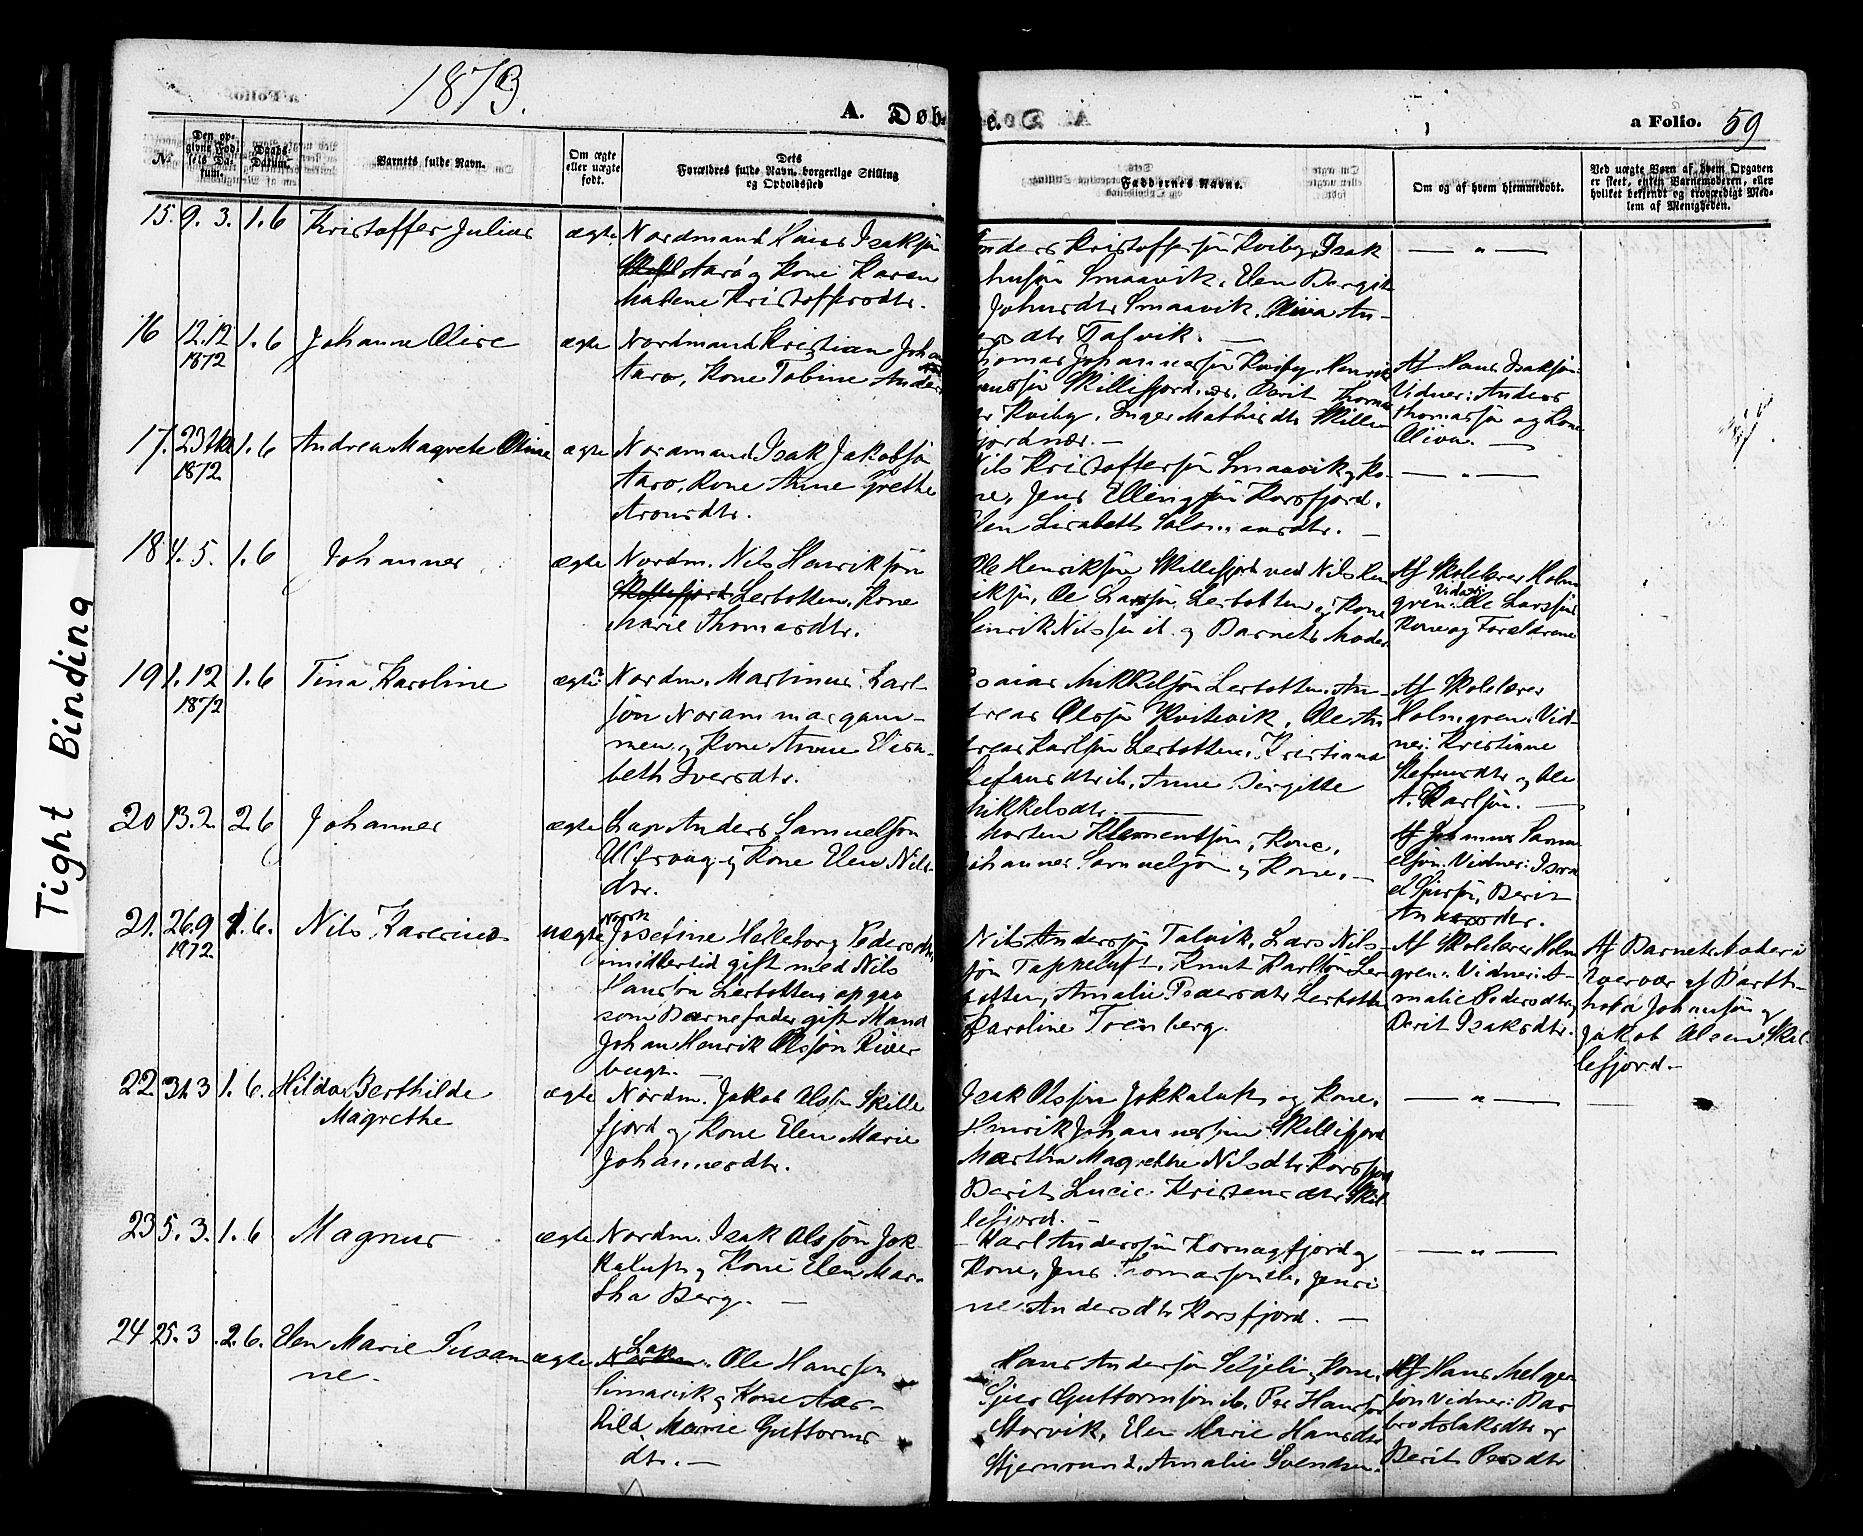 1873.
A. Døbte.
a Folio. 59
No.
Den opgivne Fødsels Datum.
Daabs Datum.
Barnets fulde Navn.
Om ægte eller uægte født.
Dets Forældres fulde Navn, borgerlige Stilling og Opholdssted
Faddernes Navne.
Om og af hvem hjemmedøbt.
Ved uægte Børn af hvem Opgaven er skeet, enten Barnemoderen, eller hvilket bekjendt og troværdigt Medlem af Menigheden.
Tight Binding
15. 9. 3. 1. 6 Kristoffer Julius ægte Nordmand Hans Isaksøn
Aarø og Kone Karen
Malene Kristoffersdtr.
Anders Kristoffersøn Kviby, Isak
Smaavik, Elen Bergite
Johnsdtr Smaavik.
Talvik. —
— " —
16 12.12 1872 1. 6 Johanne Olive ægte Nordmand Kristian Johan
Aarø, Kone Tobine Anders
Thomas Johannessøn Kviby, Henrik
Skillifjordnær, Berit Thomas
Kviby, Inger Mathisdtr Skille
fjordnær. —
Af Hans Isaksøn
Vidner: Anders
Thomassøn og Kone
Oliva. —
17. 23 1872. 1. 6 Andrea Magrete Oline ægte Nordmand Isak Jakobsøn
Aarø, Kone Anne Grethe
Aronsdtr.
Nils Kristoffersøn Smaavik og Ko-
ne, Jens Ellingsøn Korsfjord,
Elen Lisabeth Salomansdtr. —
— " —
18 4. 5. 1. 6 Johannes ægte Nordm. Nils Henriksøn
Skillefjord Lerbotten, Kone
Marie Thomasdtr.
Ole Henriksøn Skillifjord ved Nils Hen
riksøn, Ole Larssøn Lerbotten og Kone
Henrik Nilssøn ib. og Barnets Moder
Af Skolelærer Holm
gren. Vidner: Ole Larssøns
Kone og Forældrene
19 1. 12 1872 1. 6 Tina Karoline ægte Nordm. Martinus Karl-
søn
men og Kone Anne Elisa-
beth Iversdtr.
Esaias Mikkelsøn Lerbotten, An-
dreas Olssøn Kvitvik, Ole An
dreas Karlsøn Lerbotten, Kristiane
Stefansdtr ib, Anne Birgitte
Mikkelsdtr. —
Af Skolelærer
Holmgren. Vid-
ner: Kristiane
Stefansdtr og Ole
A. Karlsøn. —
20 13. 2. 2. 6 Johannes ægte Lap Anders Samuelsøn
Ulfsvaag og Kone Elen Nils-
dtr.
Morten Klementsøn, Kone,
Johannes Samuelsøn og Kone. —
Af Johannes Samu
elsøn. Vidner: Isra
el Berit
Andersdtr.
21. 26.9 1872. 1. 6. Nils Kaserius uægte Norsk
Josefine Halleborg Pedersdtr,
imidlertid gift med Nils
Hanssøn Lerbotten, opgav
som Barnefader gift Mand
Johan Henrik Olssøn River
bugt. —
Nils Anderssøn Talvik, Lars Nils-
søn Tappeluft, Knut Karlsøn Ler
botten, Amalie Pedersdtr Lerbotten
Karoline Toenberg.
Af Skolelærer Holm
gren. Vidner: A-
malie Pedersdtr og
Berit Isaksdtr.
Af Barnets Moder i
Nærvær af Barth-
Johnsøn og
Jakob Olsen Skil-
lefjord. —
22. 31. 3 1. 6. Hilda Berthilde
Magrethe ægte Nordm. Jakob Olsøn Skille
fjord og Kone Elen Marie
Johannesdtr.
Isak Olssøn Jokkaluft og Kone,
Henrik Johannessøn Skillifjord
Martha Magrethe Nilsdtr Korsfjord
Berit Lucie Kristensdtr Skil
lefjord. —
— " —
23 5. 3. 1. 6 Magnus ægte Nordm. Isak Olssøn Jok-
kaluft og Kone Elen Mar-
tha Berg. —
Karl Anderssøn Komagfjord og
Kone, Jens Thomassøn ib, Jensi
ne Andersdtr Korsfjord. —
— " —
24 25. 3. 2. 6. Elen Marie Susan
ne. ægte Lap Ole Hanssøn
og Kone Aar-
hild Marie Guttorms
dtr. —
Hans Andersøn og Kone,
Guttormsøn ib. Per Hanssøn
Storvik, Elen Marie Hansdtr
Stjernsund, Amalie Svendsen.
Af Hans Helge
søn Vidner: Bar
bro Aslaksdtr og
Berit Persdtr